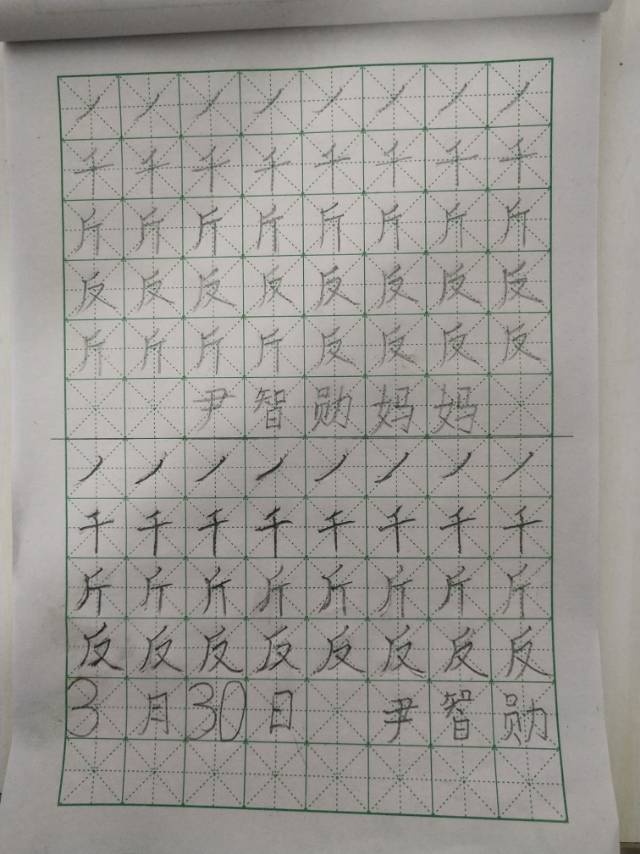 丿丿丿丿丿丿丿丿
千千千千千千千千
斤斤斤斤斤斤斤斤
反反反反反反反反
斤斤斤斤反反反反
尹智勋妈妈
丿丿丿丿丿丿丿丿
千千千千千千千千
斤斤斤斤斤斤斤斤
反反反反反反反反
3月30日 尹智勋